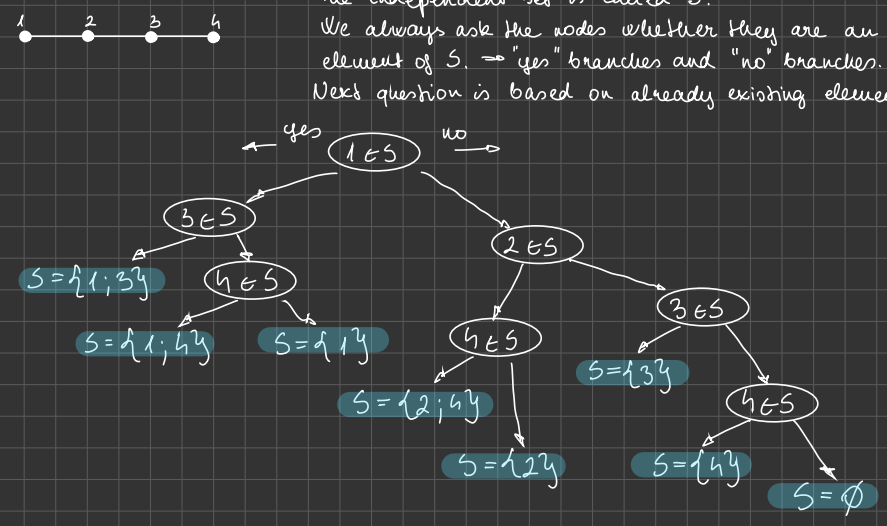 the independent set is called S.
1 2 3 4
We always ask the nodes whether they are an
element of S. → "yes" branches and "no" branches.
Next question is based on already existing eleme
← yes no →
1 ∈ S
3 ∈ S
2 ∈ S
S = {1; 3}
4 ∈ S
3 ∈ S
S = {1; 4}
S = {1}
4 ∈ S
S = {3}
S = {2; 4}
4 ∈ S
S = {2}
S = {4}
S = ∅